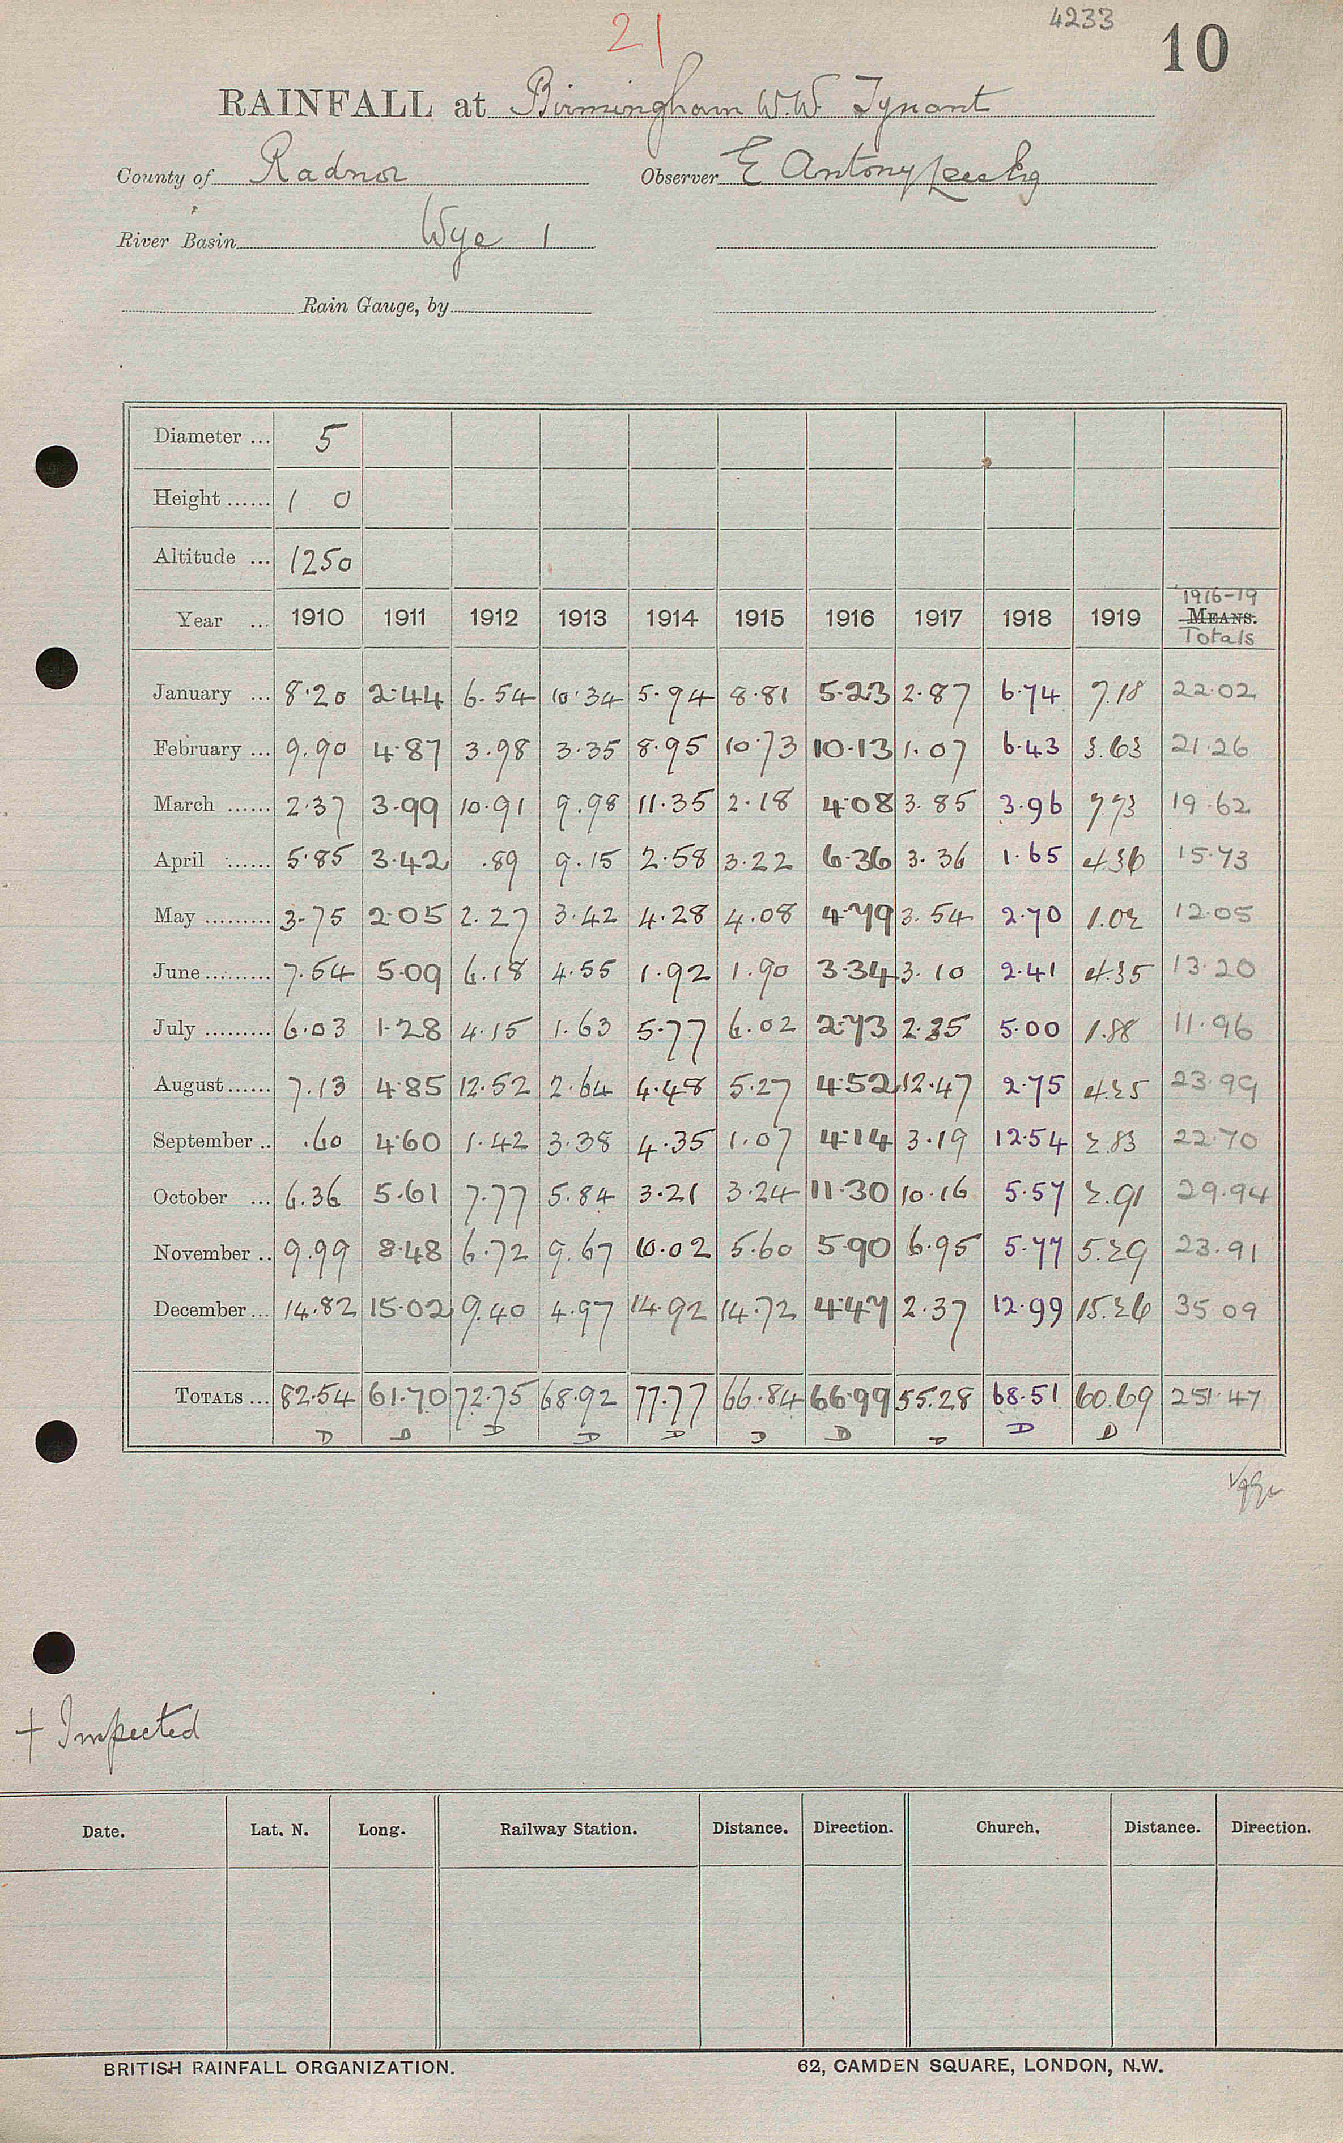 21
4233
10
RAINFALL at Birmingham W.W. Tynant
County of Radnor Observer E Antony Lees Esq
River Basin Wye 1
Rain Gauge, by
Diameter ... 5
Height ...... 1 0
Altitude ... 1250
1916-19
Year ... 1910 1911 1912 1913 1914 1915 1916 1917 1918 1919 MEANS.
Totals
January ... 8.20 2.44 6.54 10.34 5.94 8.81 5.23 2.87 6.74 7.18 22.02
February ... 9.90 4.87 3.98 3.35 8.95 10.73 10.13 1.07 6.43 3.63 21.26
March ...... 2.37 3.99 10.91 9.98 11.35 2.18 4.08 3.85 3.96 7.73 19.62
April ...... 5.85 3.42 .89 9.15 2.58 3.22 6.36 3.36 1.65 4.36 15.73
May ......... 3.75 2.05 2.27 3.42 4.28 4.08 4.79 3.54 2.70 1.02 12.05
June ......... 7.54 5.09 6.18 4.55 1.92 1.90 3.34 3.10 2.41 4.35 13.20
July ......... 6.03 1.28 4.15 1.63 5.77 6.02 2.73 2.35 5.00 1.88 11.96
August ...... 7.13 4.85 12.52 2.64 4.48 5.27 4.52 12.47 2.75 4.25 23.99
September .. .60 4.60 1.42 3.38 4.35 1.07 4.14 3.19 12.54 2.83 22.70
October ... 6.36 5.61 7.77 5.84 3.21 3.24 11.30 10.16 5.57 2.91 29.94
November .. 9.99 8.48 6.72 9.67 10.02 5.60 5.90 6.95 5.77 5.29 23.91
December ... 14.82 15.02 9.40 4.97 14.92 14.72 4.47 2.37 12.99 15.26 35.09
TOTALS ... 82.54 61.70 72.75 68.92 77.77 66.84 66.99 55.28 68.51 60.69 251.47
D D D D D D D D D D
+ Inspected
Date. Lat. N. Long. Railway Station. Distance. Direction. Church. Distance. Direction.
BRITISH RAINFALL ORGANIZATION. 62, CAMDEN SQUARE, LONDON, N.W.